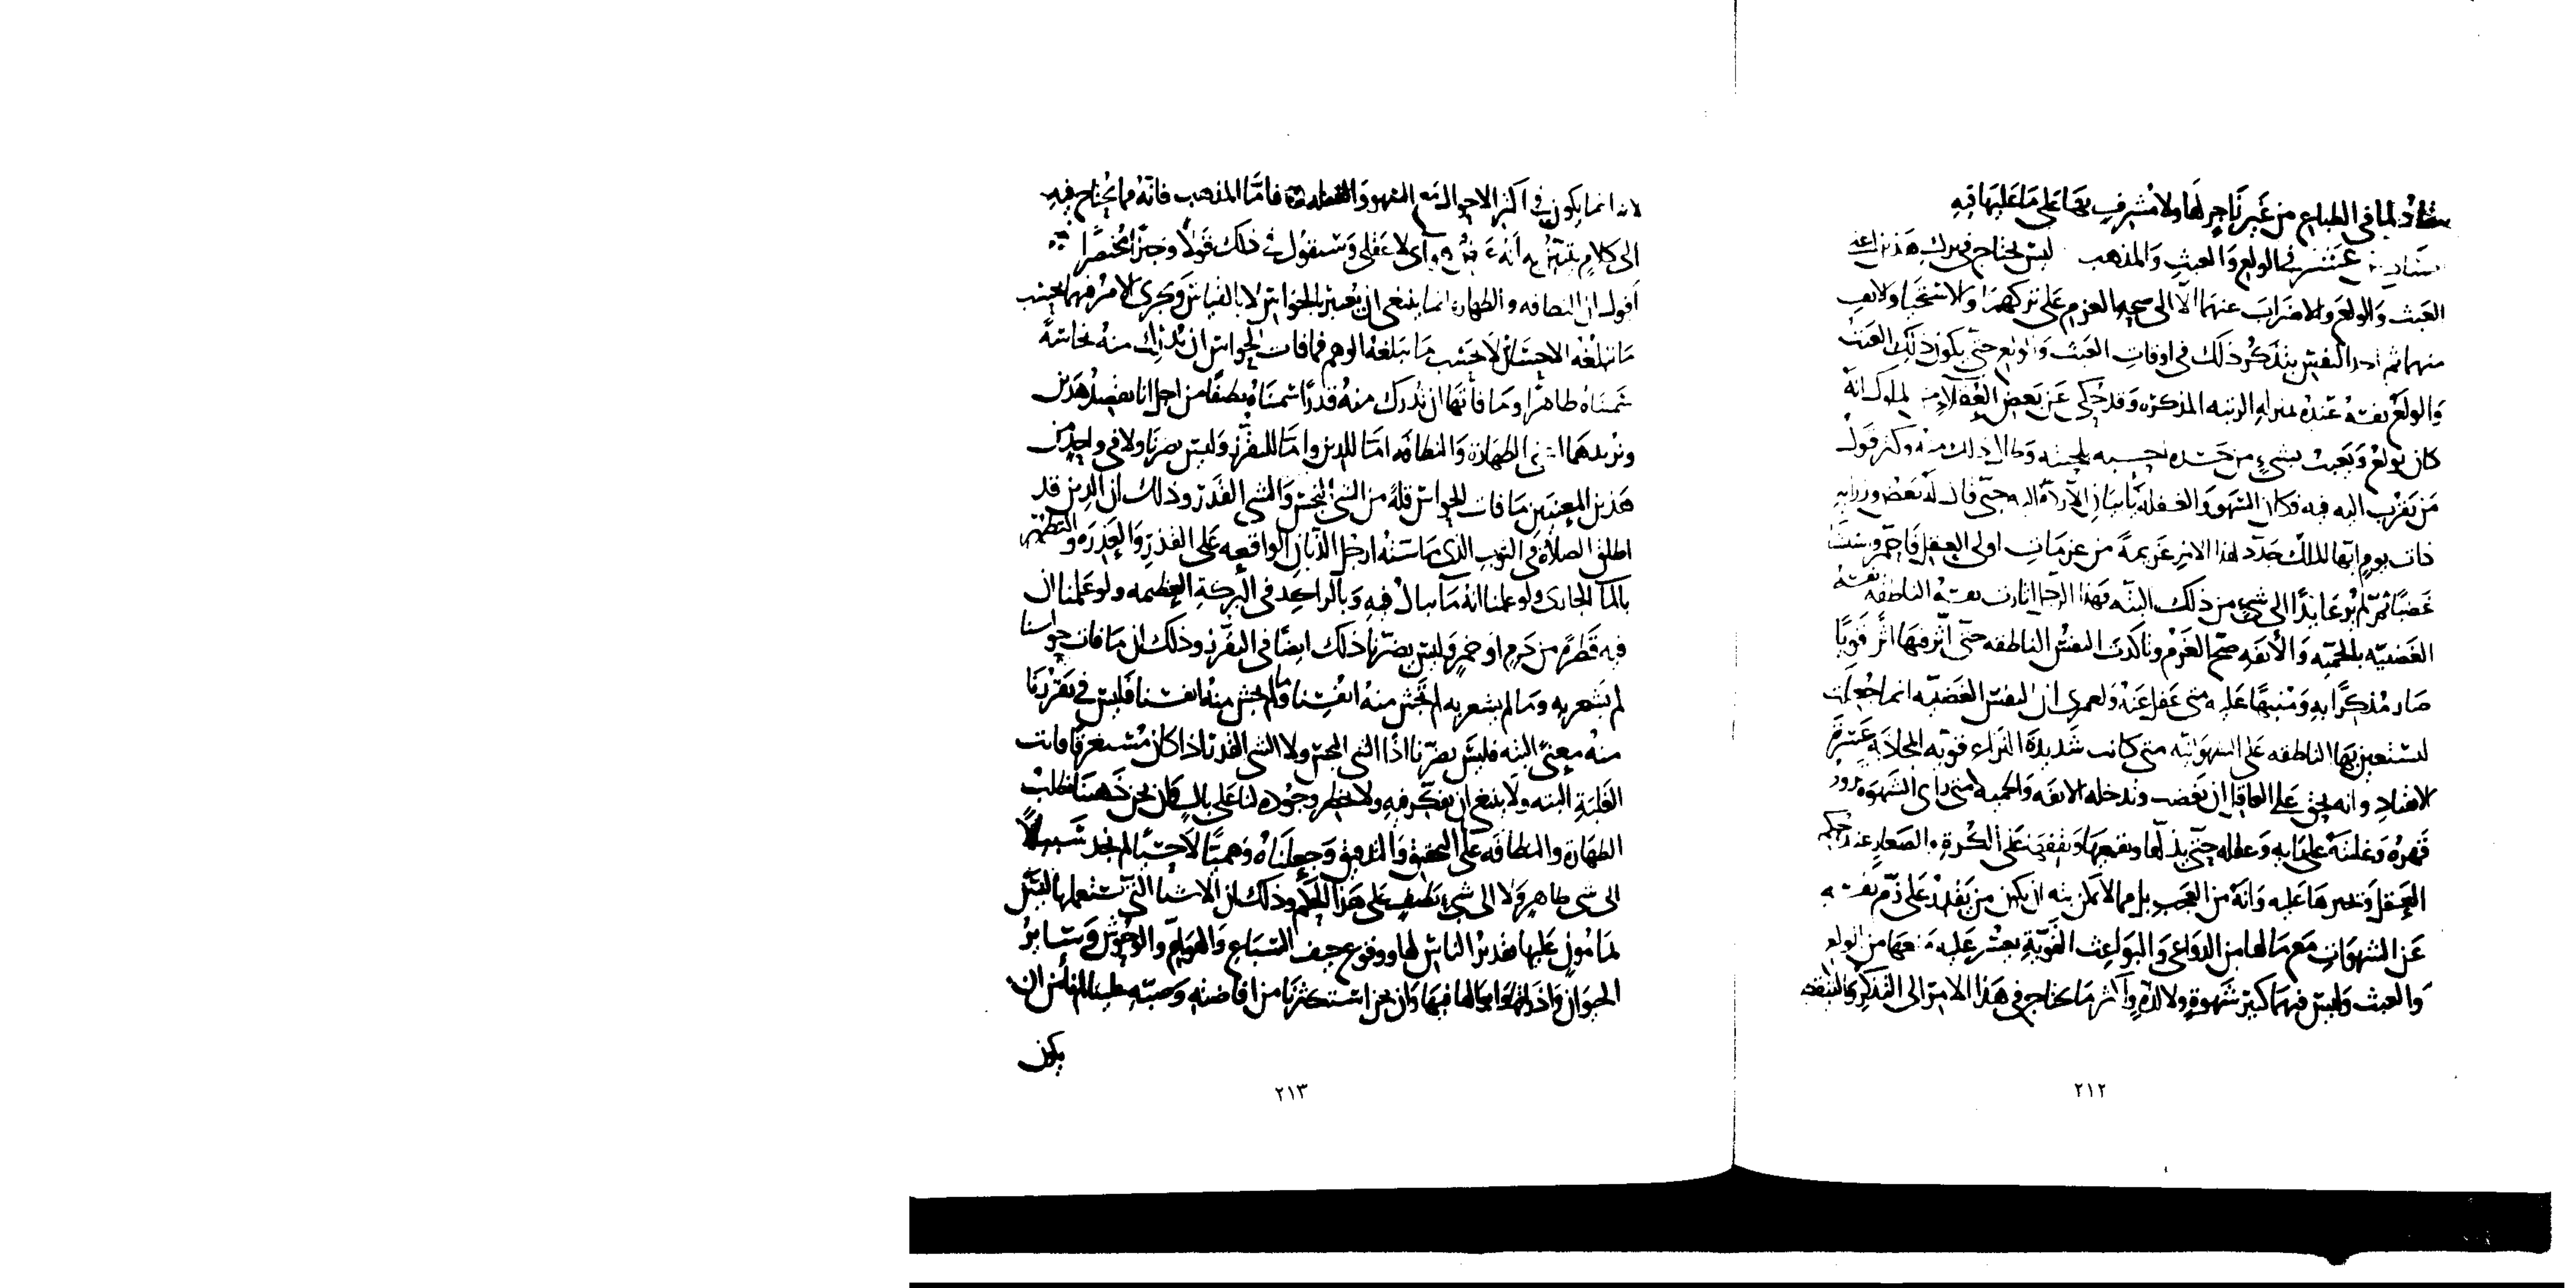 لما فى الطباع من غير زاجر لها ولا مشرف بها على ما عليها فيه
عشر فى الولع والعبث والمذهب ليس يحتاج فى ترك هذين اعنى
العبث والولع والاضراب عنهما الا الى صحه العزم على تركهما والاستحيا والانف
منهما ثم النفس بتذكر ذلك فى اوقات العبث والولع حتى يكون ذلك العبث
والولع نفسه عنده بمنزله الرتيمه المذكره وقد حكى عن بعض العقلا من الملوك انه
كان يولع ويعبث بشىء من جسده احسبه لحيته وطال ذلك منه وكثر قول
من يقرب اليه فيه فكان السهو والغفله يأبيان الا رده اليه حتى قال له بعض وزرايه
ذات يوم ايها الملك جدد لهذا الامر عزيمة من عزمات اولى العقل فاحمر
غضبا ثم لم يرعا يدا الى شى من ذلك البته فهذا الرجل اثارت نفسه الناطقه نفسه
الغضبيه بالحميه والأنفه صح العزم وتأكدت النفس الناطقه حتى اثر فيها اثرا قويا
صار مذكرا به ومنبها عليه متى غفل عنه ولعمرى ان النفس الغضبيه انما جعلت
لتستعين بها الناطقه على الشهوانيه متى كانت شديدة النزاع قويه المجاذبه عسرة
الانقياد وانه يحق على العاقل ان يغضب وتدخله الانفه والحميه متى راى الشهوة تروم
قهره وغلبته على رايه وعقله حتى يذلها ويقمعها ويقفها على الكره والصغار عند حكم
العقل ويجبرها عليه وانه من العجب بل مما لا يمكن بته ان يكون من يقدر على زم نفسه
عن الشهوات مع ما لها من الدواعى والبواعث القوية يعسر عليه منعها من الولع
والعبث وليس فيهما كبير شهوة ولا لذة واكثر ما يحتاج فى هذا الامر الى التذكر والتيقظ
٢١٢
لانه انما يكون فى اكثر الاحوال مع السهو والغفله فاما المذهب فانه مما يحتاج فيه
الى كلام يتبين به انه عرض لا عقلى وسنقول فى ذلك قولا وجيزا مختصرا
اقول ان النظافه والطهاره انما ينبغى ان يعتبر بالحواس لا بالقياس ويجرى الامر فيهما بحسب
ما يبلغه الاحساس لا بحسب ما يبلغه الوهم فما فات الحواس ان تدرك منه نجاسة
سميناه طاهرا وما فاتها ان تدرك منه قذرا سميناه نظيفا من اجل انا نقصد هذين
ونريدهما اعنى الطهارة والنظافه اما للدين واما للتقزز وليس يضرنا ولا فى واحد من
هذين المعنيين ما فات الحواس قلة من الشئ النجس والشى القذر وذلك ان الدين قد
اطلق الصلاة فى الثوب الذى ماسته ارجل الذبان الواقعه على القذر والعذرة والتطهر
بالما الجارى ولو علمنا انه مما يبال فيه وبالراكد فى البركة العظيمه ولو علمنا ان
فيه قطرة من دم او خمر وليس يضرنا ذلك ايضا فى التقزز وذلك ان ما فات حواسنا
لم نشعر به وما لم نشعر به لم تخبث منه انفسنا وما لم تخبث منه انفسنا فليس فى تقززنا
منه معنى البته فليس يضرنا اذا الشى النجس ولا الشى القذر اذا كان مستغرقا فائت
القلة البته ولا ينبغى ان نفكر فيه ولا يخطر وجوده لنا على بال وان نحن ذهبنا نطلب
الطهارة والنظافه على التحقيق والتدقيق وجعلناه وهميا لا حسيا لم نجد سبيلا
الى شى طاهر ولا الى شىء نظيف على هذا الحكم وذلك ان الاشيا التى نستعملها ليس
بمأمون عليها تقذير الناس لها ووقوع جيف السباع والهوام والوحوش وسائر
الحيوان وأذراقها وأبوالها فيها وان نحن استكثرنا من افاضته وصبه علينا لم نأمن ان
يكون
٢١٣